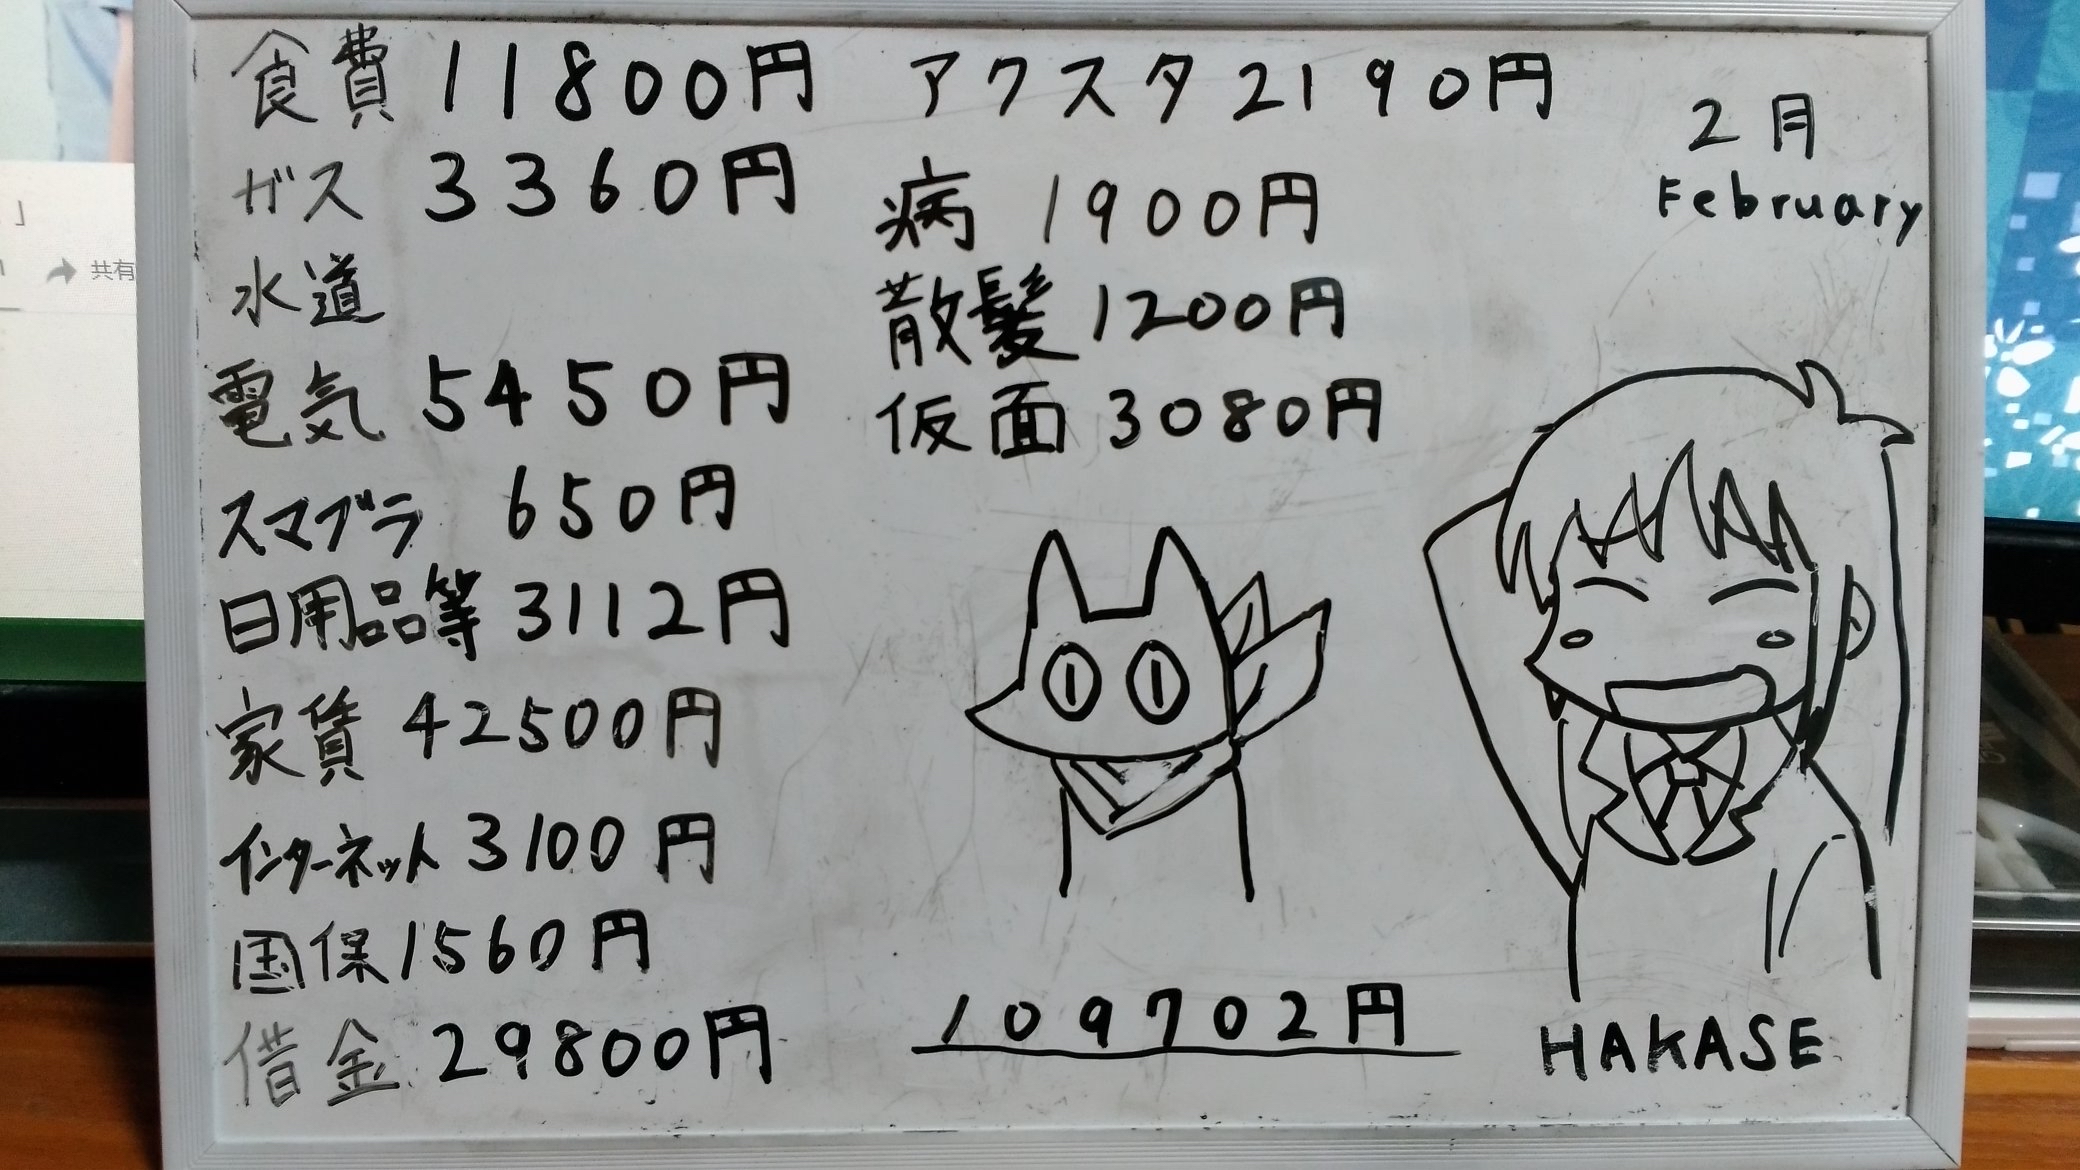 食費 11800円
ガス 3360円
水道
電気 5450円
スマブラ 650円
日用品等 3112円
家賃 42500円
インターネット 3100円
国保 1560円
借金 29800円
アクスタ 2190円
病 1900円
散髪 1200円
仮面 3080円
109702円
2月
February
HAKASE
共有